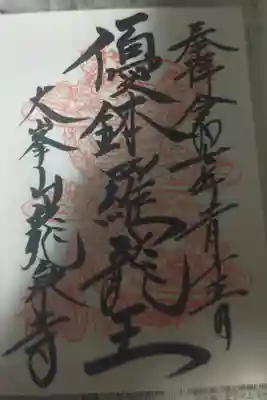 奉拝 令和七年二月十五日
優鉢羅龍王
大峯山龍泉寺